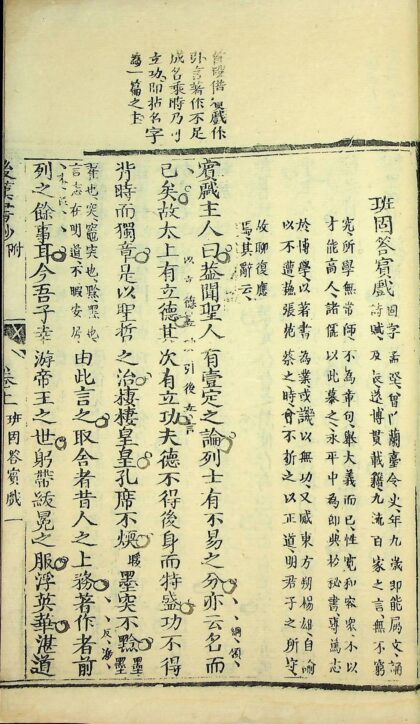 班固答賓戲
固字孟堅曾門蘭臺令史年九歲即能屬文誦
詩賦及長遂博貫載籍九流百家之言無不窮
究所學無常師不為章句舉大義而已性寬和容衆不以
才能高人諸儒以此慕之永平中為郎典校秘書專篤志
於博學以著書為業或譏以無功又感東方朔楊雄自喻
以不遭蘇張范蔡之時曾不折之以正道明君子之所守
故聊復應
焉其辭云
賓戲主人曰蓋聞聖人有壹定之論列士有不易之分亦云名而
已矣故太上有立德其次有立功夫德不得後身而特盛功不得
背時而獨章是以聖哲之治棲棲皇皇孔席不煗墨突不黔
由此言之取舍者昔人之上務著作者前
列之餘事耳今吾子幸游帝王之世躬帶紱冕之服浮英華湛道
戲作
引言著作不足
成名乘時乃可
立功即拈名字
為一篇之主
以立德
引後立言
綱領
煖
突竈突也黔黑也
言志在明道不暇安居
反海
後漢書鈔
附
卷上
班固答賓戲
一